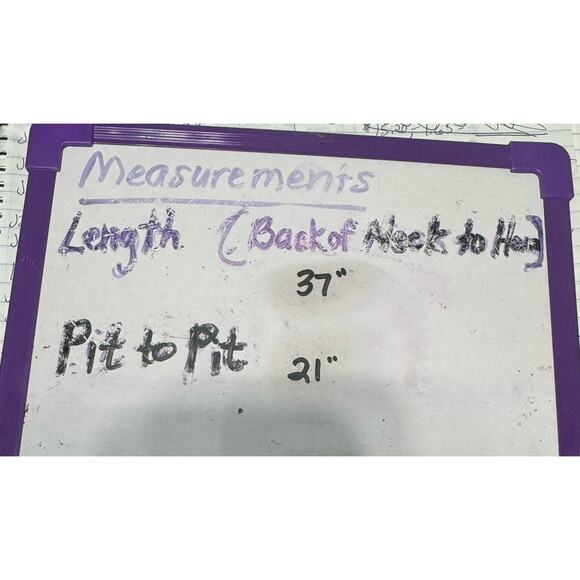 Measurements
Length (Back of Neck to Hem)
37"
Pit to Pit 21"